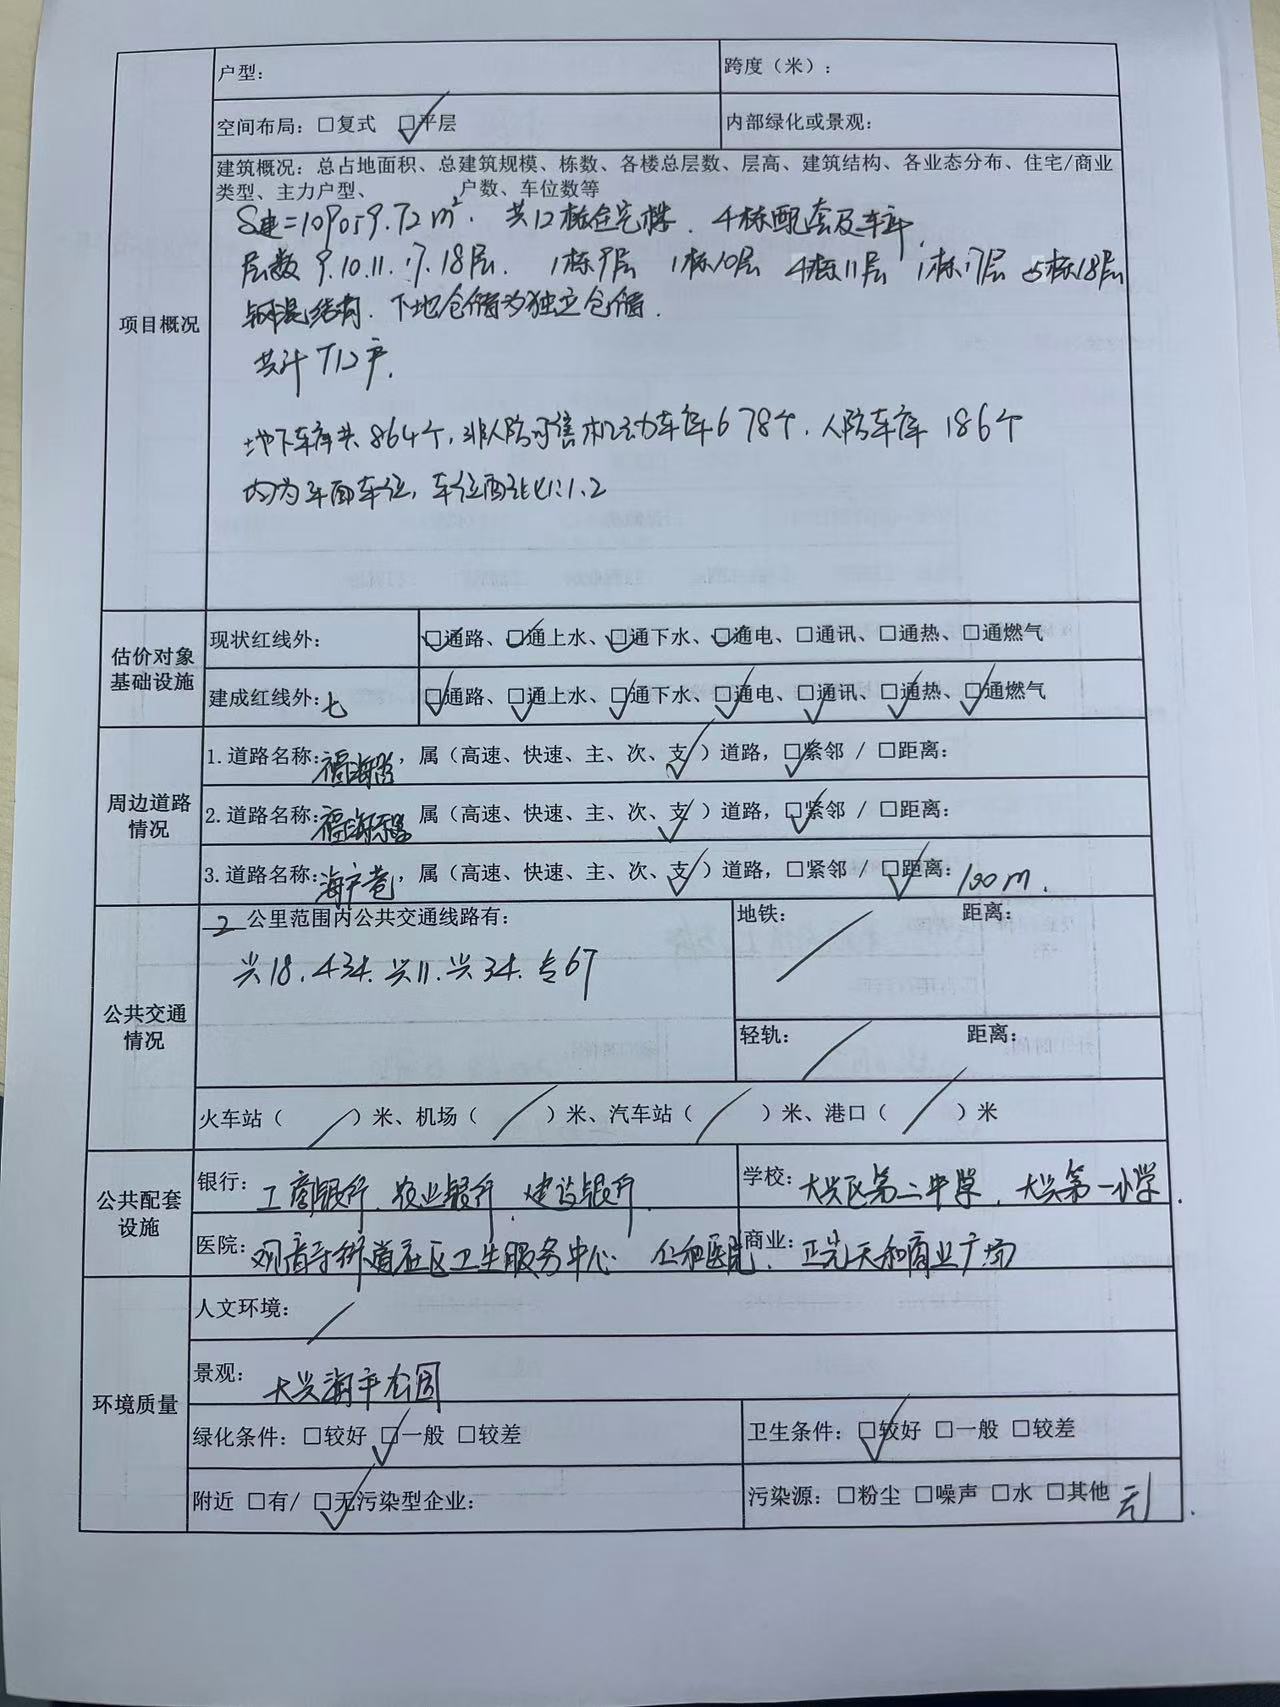 户型： 跨度（米）：
空间布局：☐复式 ☑平层 内部绿化或景观：
项目概况
建筑概况：总占地面积、总建筑规模、栋数、各楼总层数、层高、建筑结构、各业态分布、住宅/商业
类型、主力户型、 户数、车位数等
S建=109059.72m². 共12栋住宅楼. 4栋配套及车库,
层数 9.10.11.17.18层. 1栋9层 1栋10层 4栋11层 1栋17层 5栋18层
钢混结构. 下地仓储为独立仓储.
共计712户.
地下车库共864个, 非人防可售机动车库678个. 人防车库 186个
均为平面车位, 车位配比1:1.2
估价对象
基础设施
现状红线外： ☑通路、☑通上水、☑通下水、☑通电、☐通讯、☐通热、☐通燃气
建成红线外：七 ☑通路、☑通上水、☑通下水、☑通电、☑通讯、☑通热、☑通燃气
周边道路
情况
1.道路名称：福海路，属（高速、快速、主、次、支✓）道路，☑紧邻 / ☐距离：
2.道路名称：福海路，属（高速、快速、主、次、支✓）道路，☑紧邻 / ☐距离：
3.道路名称：海户巷，属（高速、快速、主、次、支✓）道路，☐紧邻 / ☑距离：100m.
公共交通
情况
2 公里范围内公共交通线路有：
兴18. 434. 兴11. 兴34. 专67
地铁： / 距离：
轻轨： / 距离：
火车站（ / ）米、机场（ / ）米、汽车站（ / ）米、港口（ / ）米
公共配套
设施
银行：工商银行. 农业银行. 建设银行. 学校：大兴区第二中学, 大兴第一小学.
医院：观音寺街道社区卫生服务中心 仁和医院. 商业：正光天和商业广场
环境质量
人文环境： /
景观：大兴海子公园
绿化条件：☐较好 ☑一般 ☐较差 卫生条件：☑较好 ☐一般 ☐较差
附近 ☐有/ ☑无污染型企业： 污染源：☐粉尘 ☐噪声 ☐水 ☐其他 无.